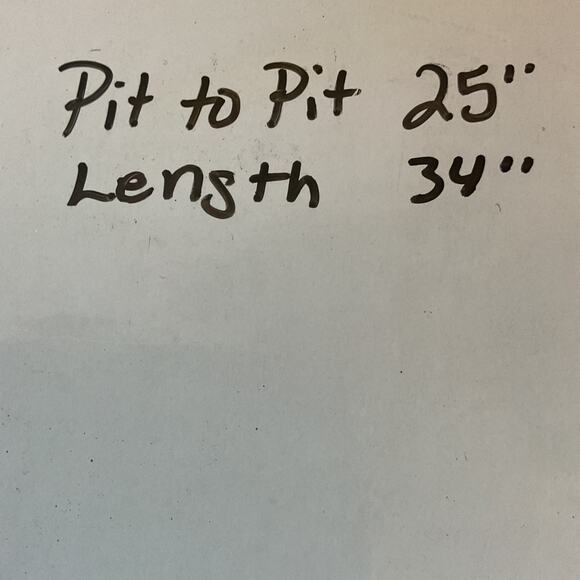 Pit to Pit 25"
Length 34"